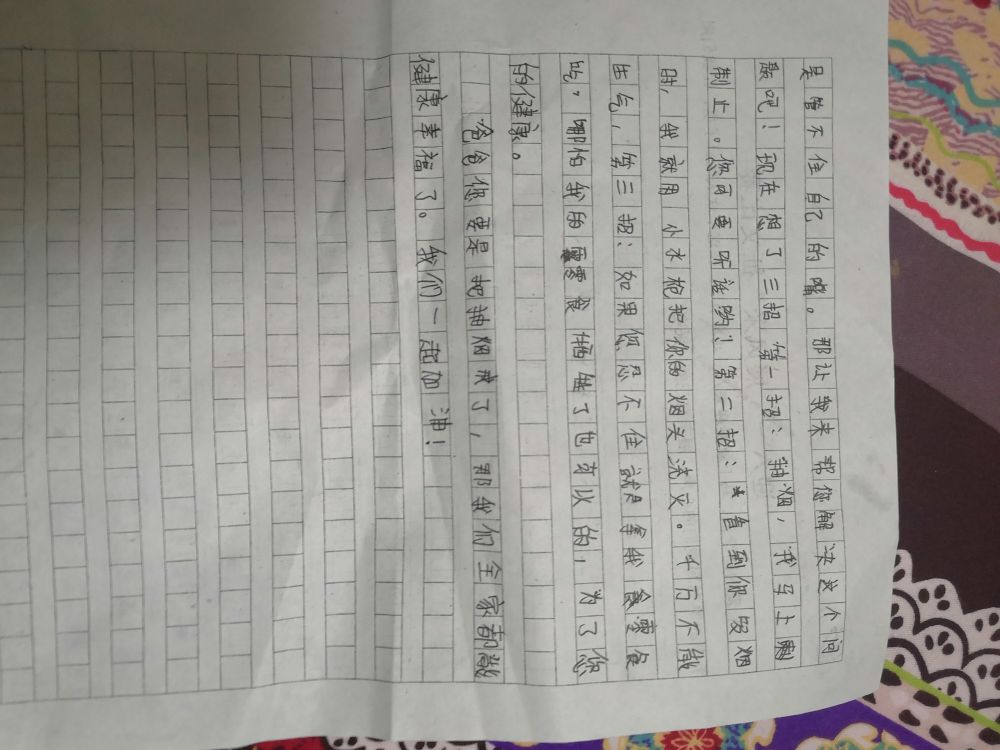 是管不住自己的嘴。那让我来帮你解决这个问
题吧！现在想了三招第一招：抽烟，我马上制
制止。您可要听话哟！第二招：看到你吸烟
时，我就用小水枪把你的烟头浇灭。千万不做
生气，第三招：如果您忍不住就是拿我食零食
吃，哪怕我的零食牺牲了也可以的，为了您
的健康。
爸爸你要是把抽烟戒了，那我们全家都敬
健康幸福了。我们一起加油！